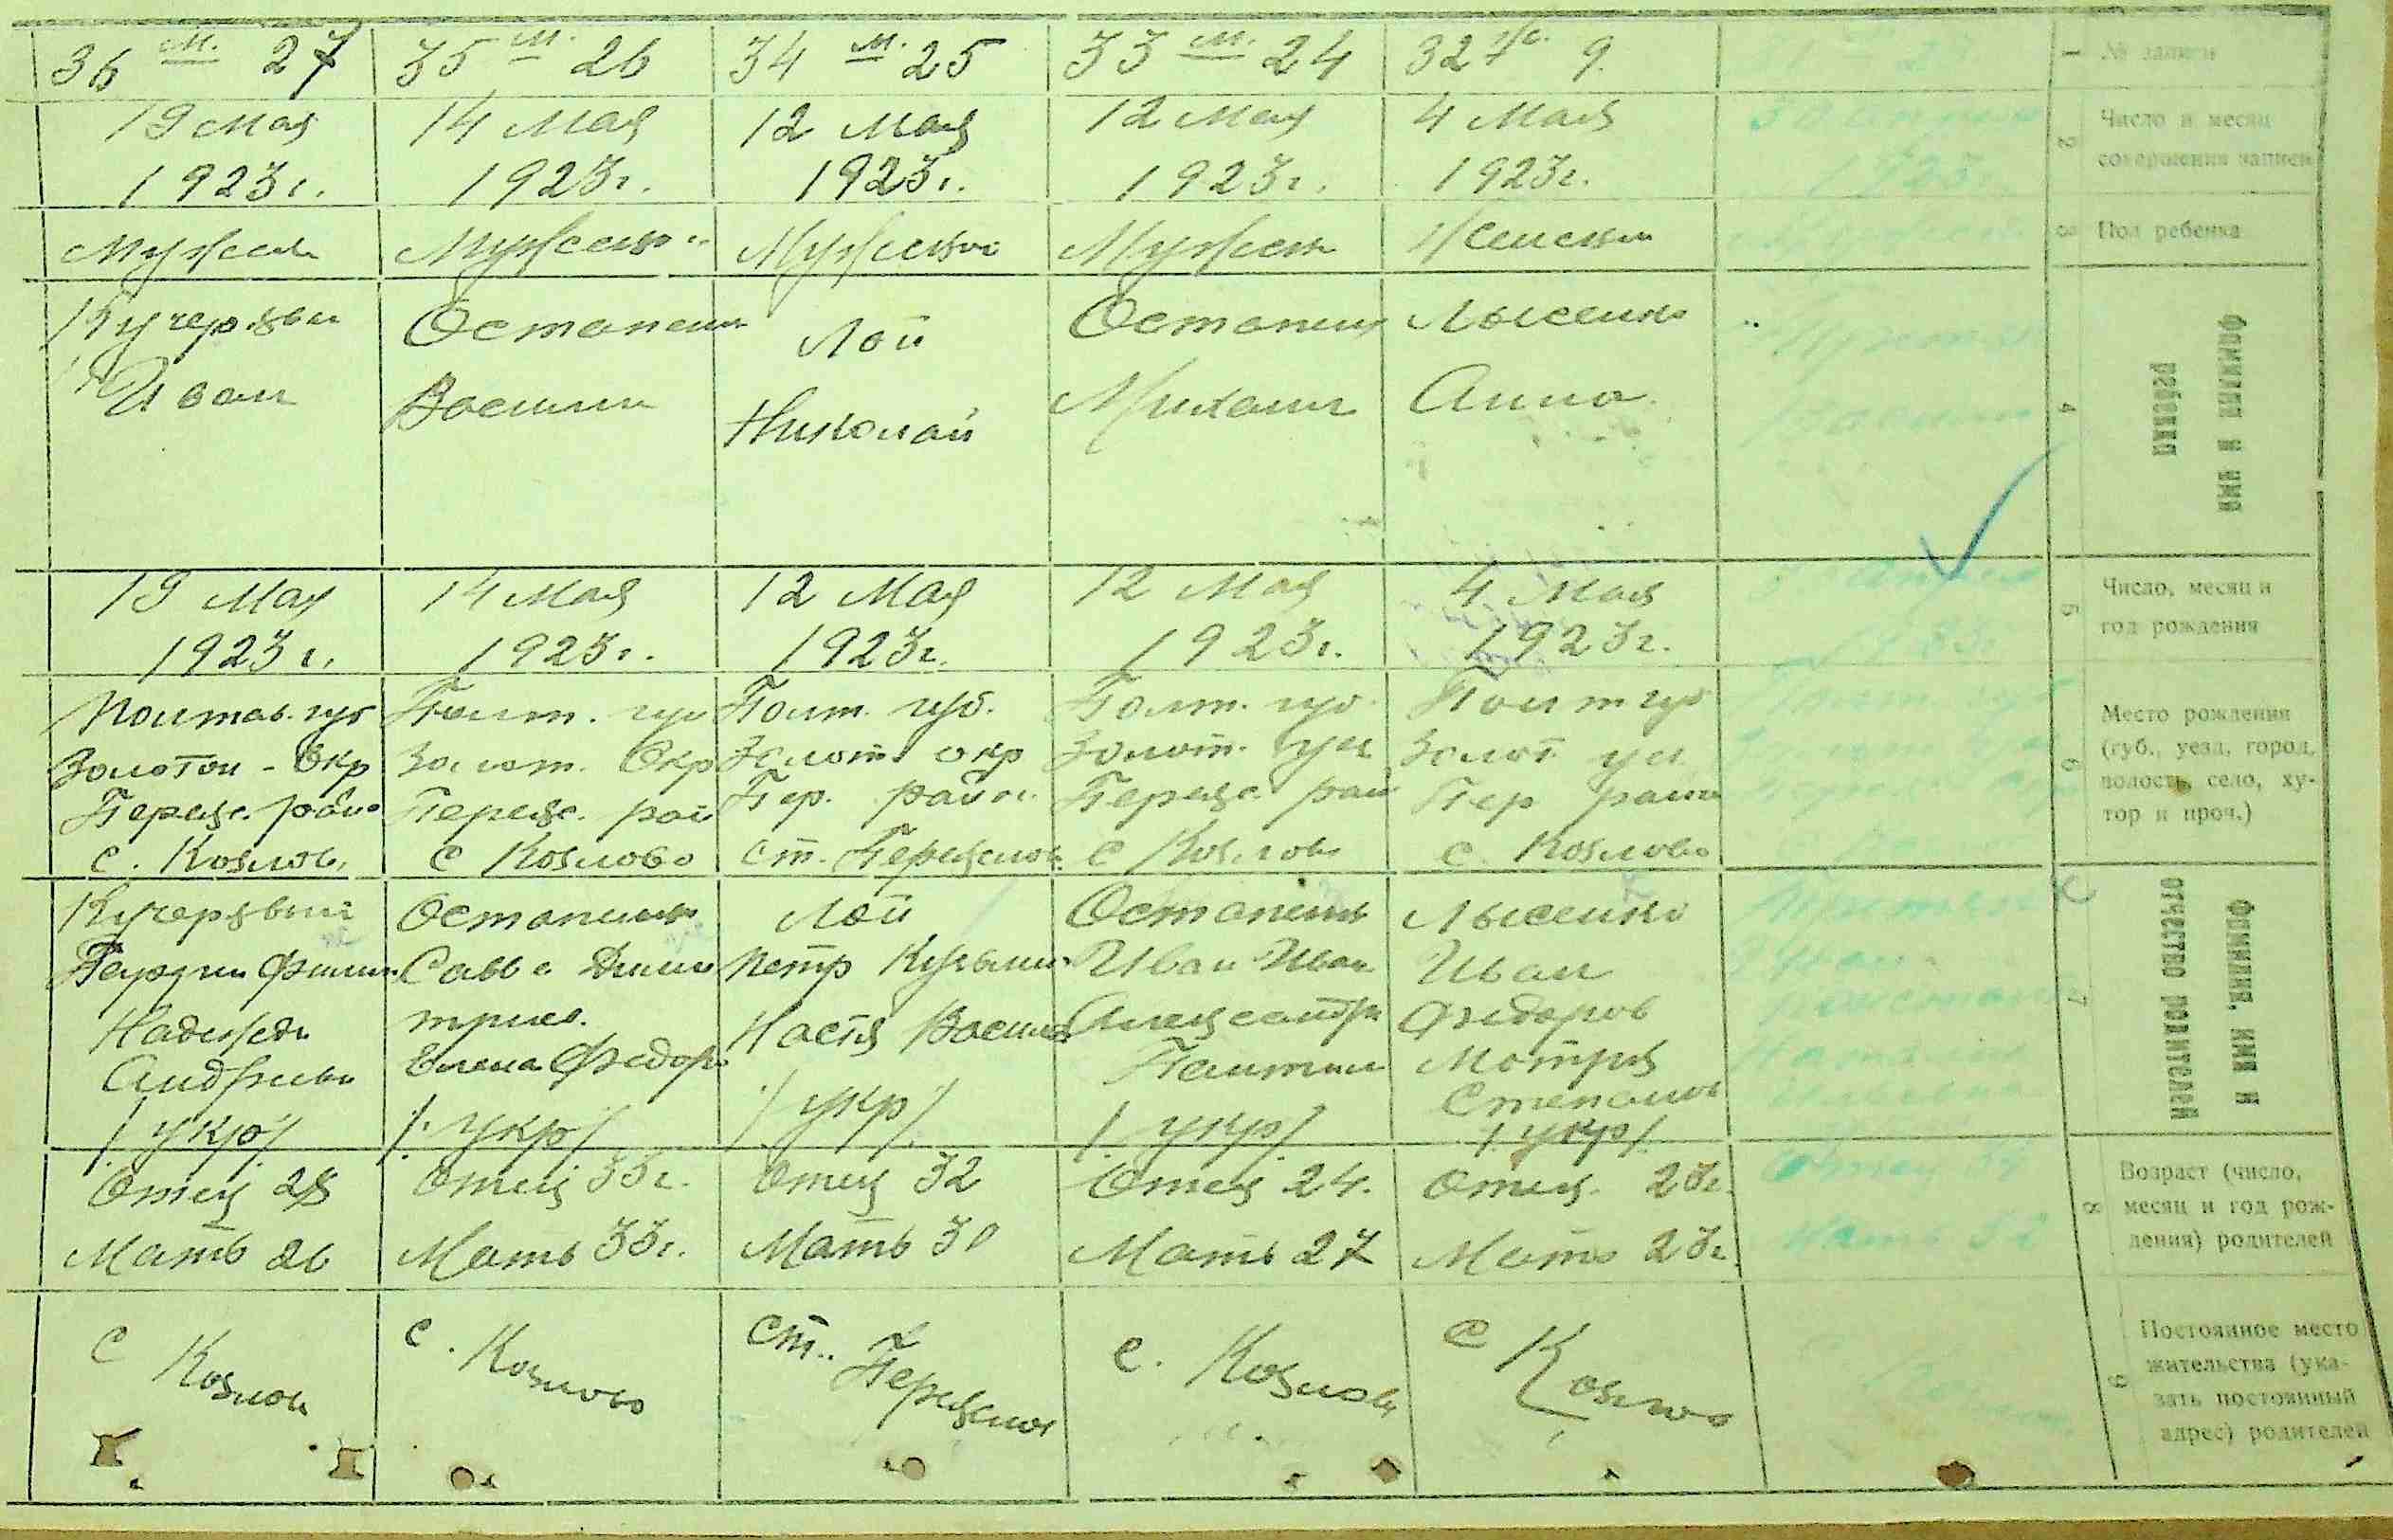 36 м. 27
35 м. 26
34 м. 25
33 м. 24
32 ж. 9.
1
№ записи
19 Мая
1923 г.
14 Мая
1923 г.
12 Мая
1923 г.
12 Мая
1923 г.
4 Мая
1923 г.
2
Число и месяц
совершения записи
Мужеск
Мужеский
Женский
3
Пол ребенка
Кучерявый
Иван
Остапенко
Василий
Лой
Николай
Остапенко
Михаил
Лысенко
Анна
4
Фамилия и имя
ребенка
19 Мая
1923 г.
14 Мая
1923 г.
12 Мая
1923 г.
12 Мая
1923 г.
4 Мая
1923 г.
5
Число, месяц и
год рождения
Полтав. губ
Золотон - Окр
Переяс. район
с. Козлов
Полт. губ
Золот. Окр
Переяс. рай
с Козлово
Полт. губ.
Золот. окр
Пер. район.
ст. Переяслов
Полт. губ.
Золот. уез
Переяс. рай
с Козлов
Полт губ
Золот уез
Пер район
с. Козлово
6
Место рождения
(губ., уезд, город,
волость, село, ху-
тор и проч.)
Кучерявый
Надежда
Андреева
/. укр/.
Остапенко
Савва Дими
триев.
Елена Федор
/. укр/
Лой
Петр Кузьмин
Настя Василь
/. укр/.
Остапенко
Иван Иван
Александра
/. укр/.
Лысенко
Иван
Федоров
Мотря
Степанов
/. укр/.
7
Фамилия, имя и
отчество родителей
Отец 28
Мать 26
Отец 33 г.
Мать 33 г.
Отец 32
Мать 30
Отец 24.
Мать 27
Отец. 23 г.
Мать 23 г.
8
Возраст (число,
месяц и год рож-
дения) родителей
с
Козлов
с.
Козлово
ст.
Переяслов
с. Козлов
с
Козлово
9
Постоянное место
жительства (ука-
зать постоянный
адрес) родителей